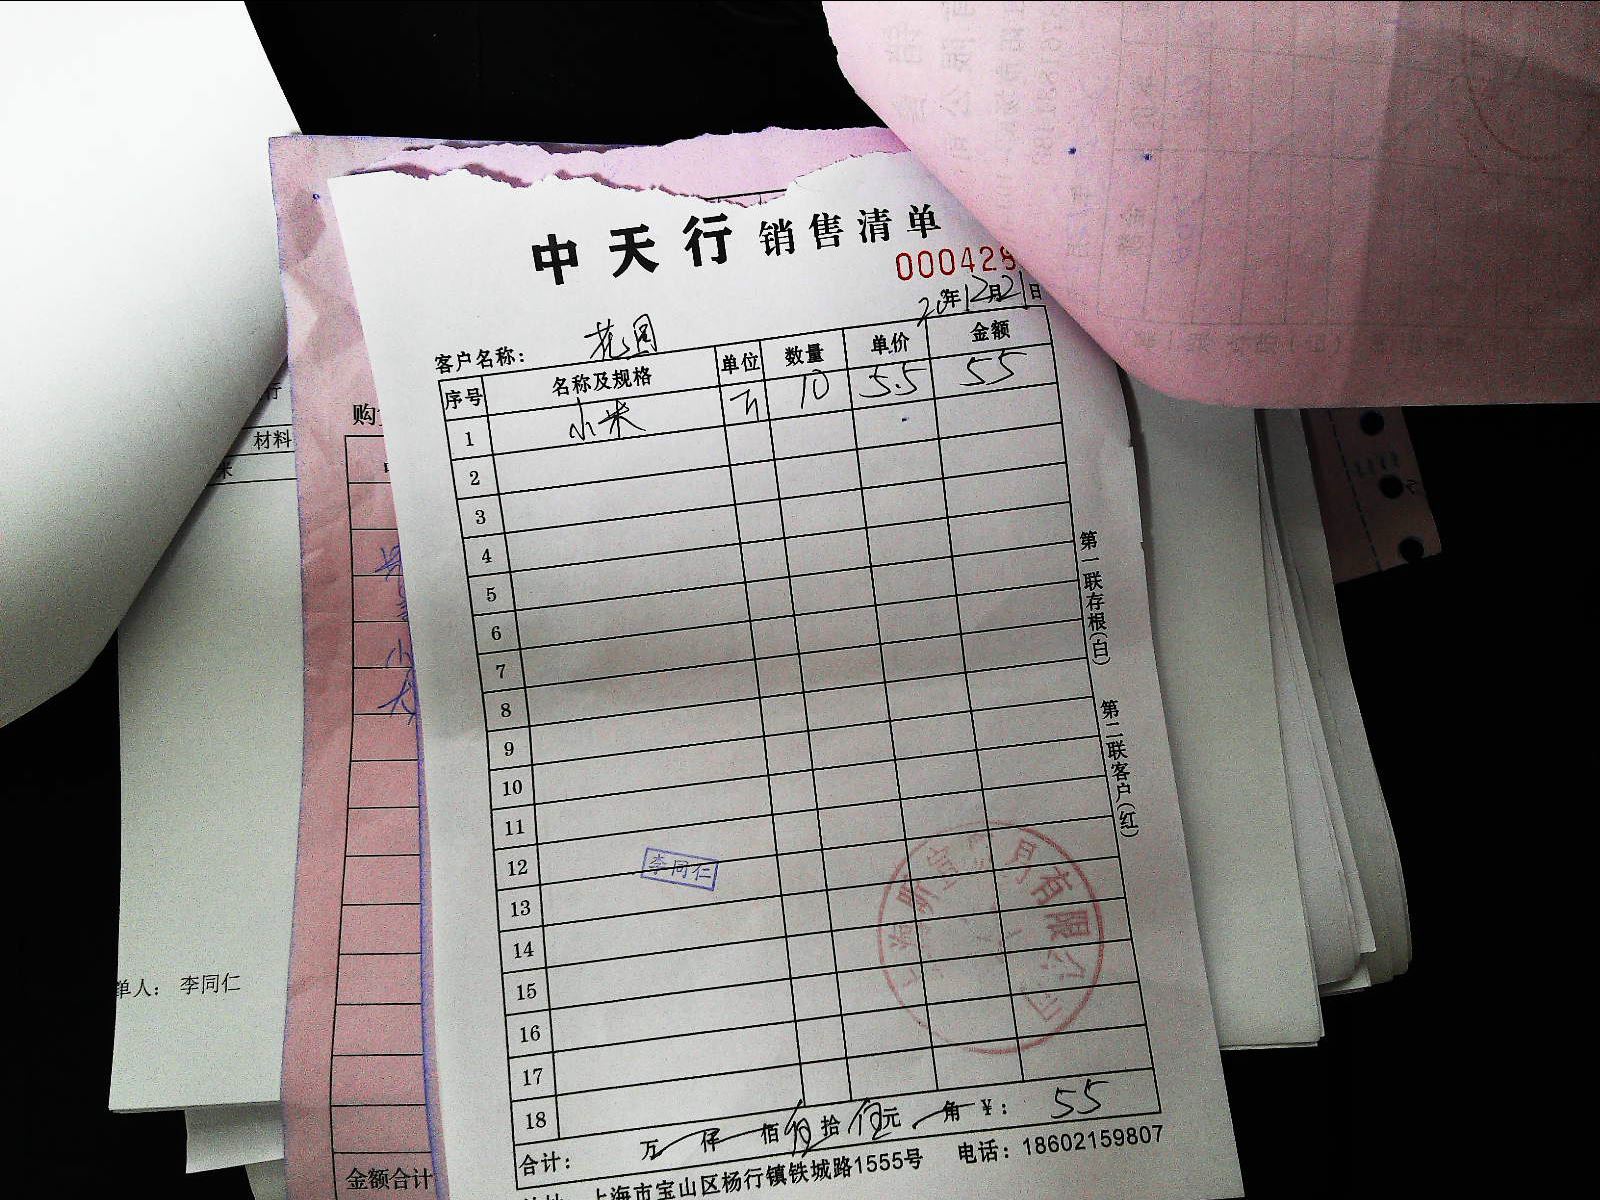 中天行 销售清单
000428
20 年 12 月 21 日
客户名称： 花园
序号 名称及规格 单位 数量 单价 金额
1 小米 斤 10 5.5 55
2
3
4
5
6
7
8
9
10
11
12
李同仁
13
14
15
16
17
18
合计： 万 仟 佰 伍 拾 伍 元 角 ¥： 55
上海市宝山区杨行镇铁城路1555号 电话：18602159807
第一联存根(白)
第二联客户(红)
有限公司
购
材料
米
单人： 李同仁
金额合计